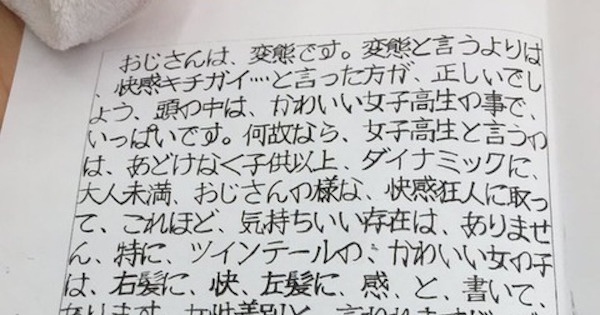 おじさんは、変態です。変態と言うよりは
、快感キチガイ…と言った方が、正しいでし
ょう、頭の中は、かわいい女子高生の事で、
いっぱいです。何故なら、女子高生と言うの
は、あどけなく子供以上、ダイナミックに、
大人未満、おじさんの様な、快感狂人に取っ
て、これほど、気持ちいい存在は、ありませ
ん、特に、ツインテールの、かわいい女の子
は、右髪に、快、左髪に、感、と、書いて、
なります。女性差別と、言われます